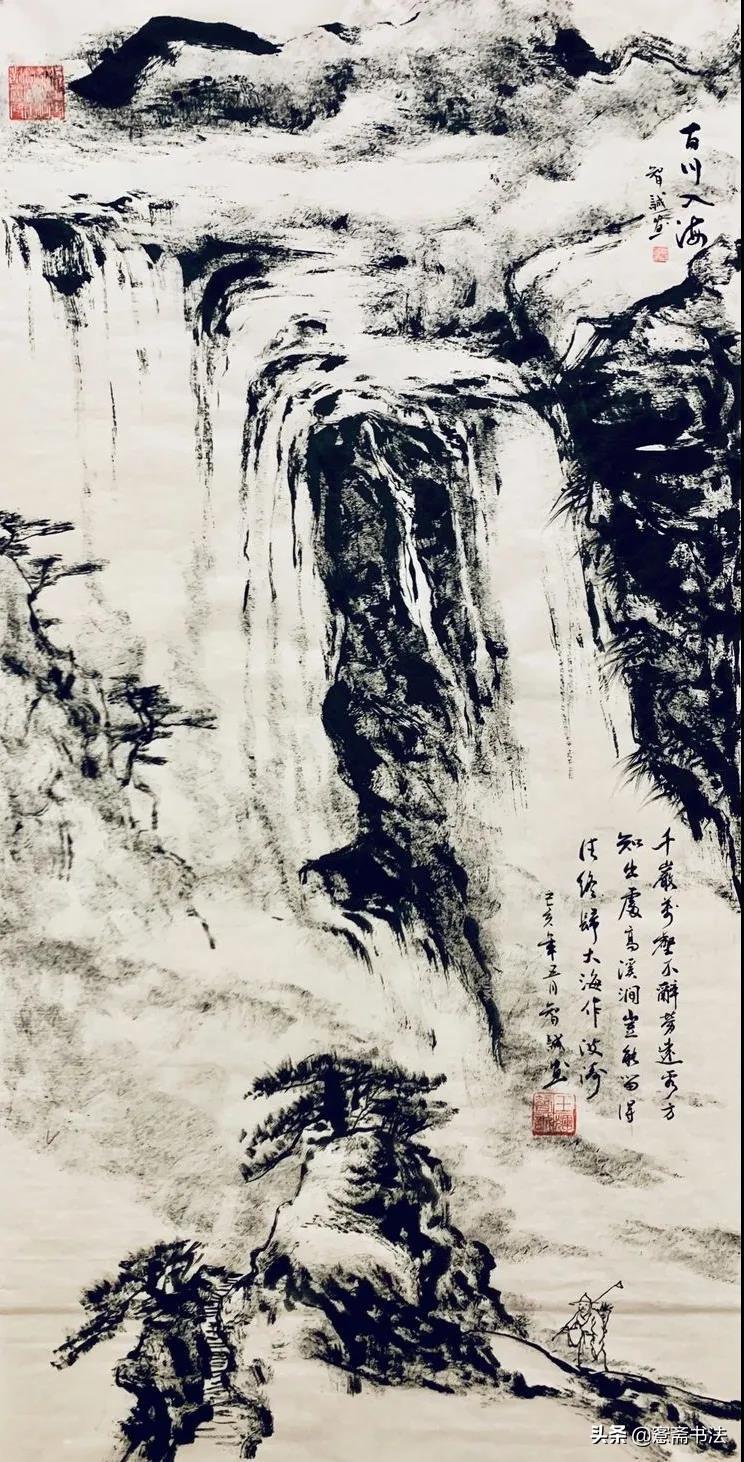 百川入海
智誠畫
千巖萬壑不辭勞遠看方
知出處高溪澗豈能留得
住終歸大海作波濤
己亥年五月智誠畫
头条 @斋书法